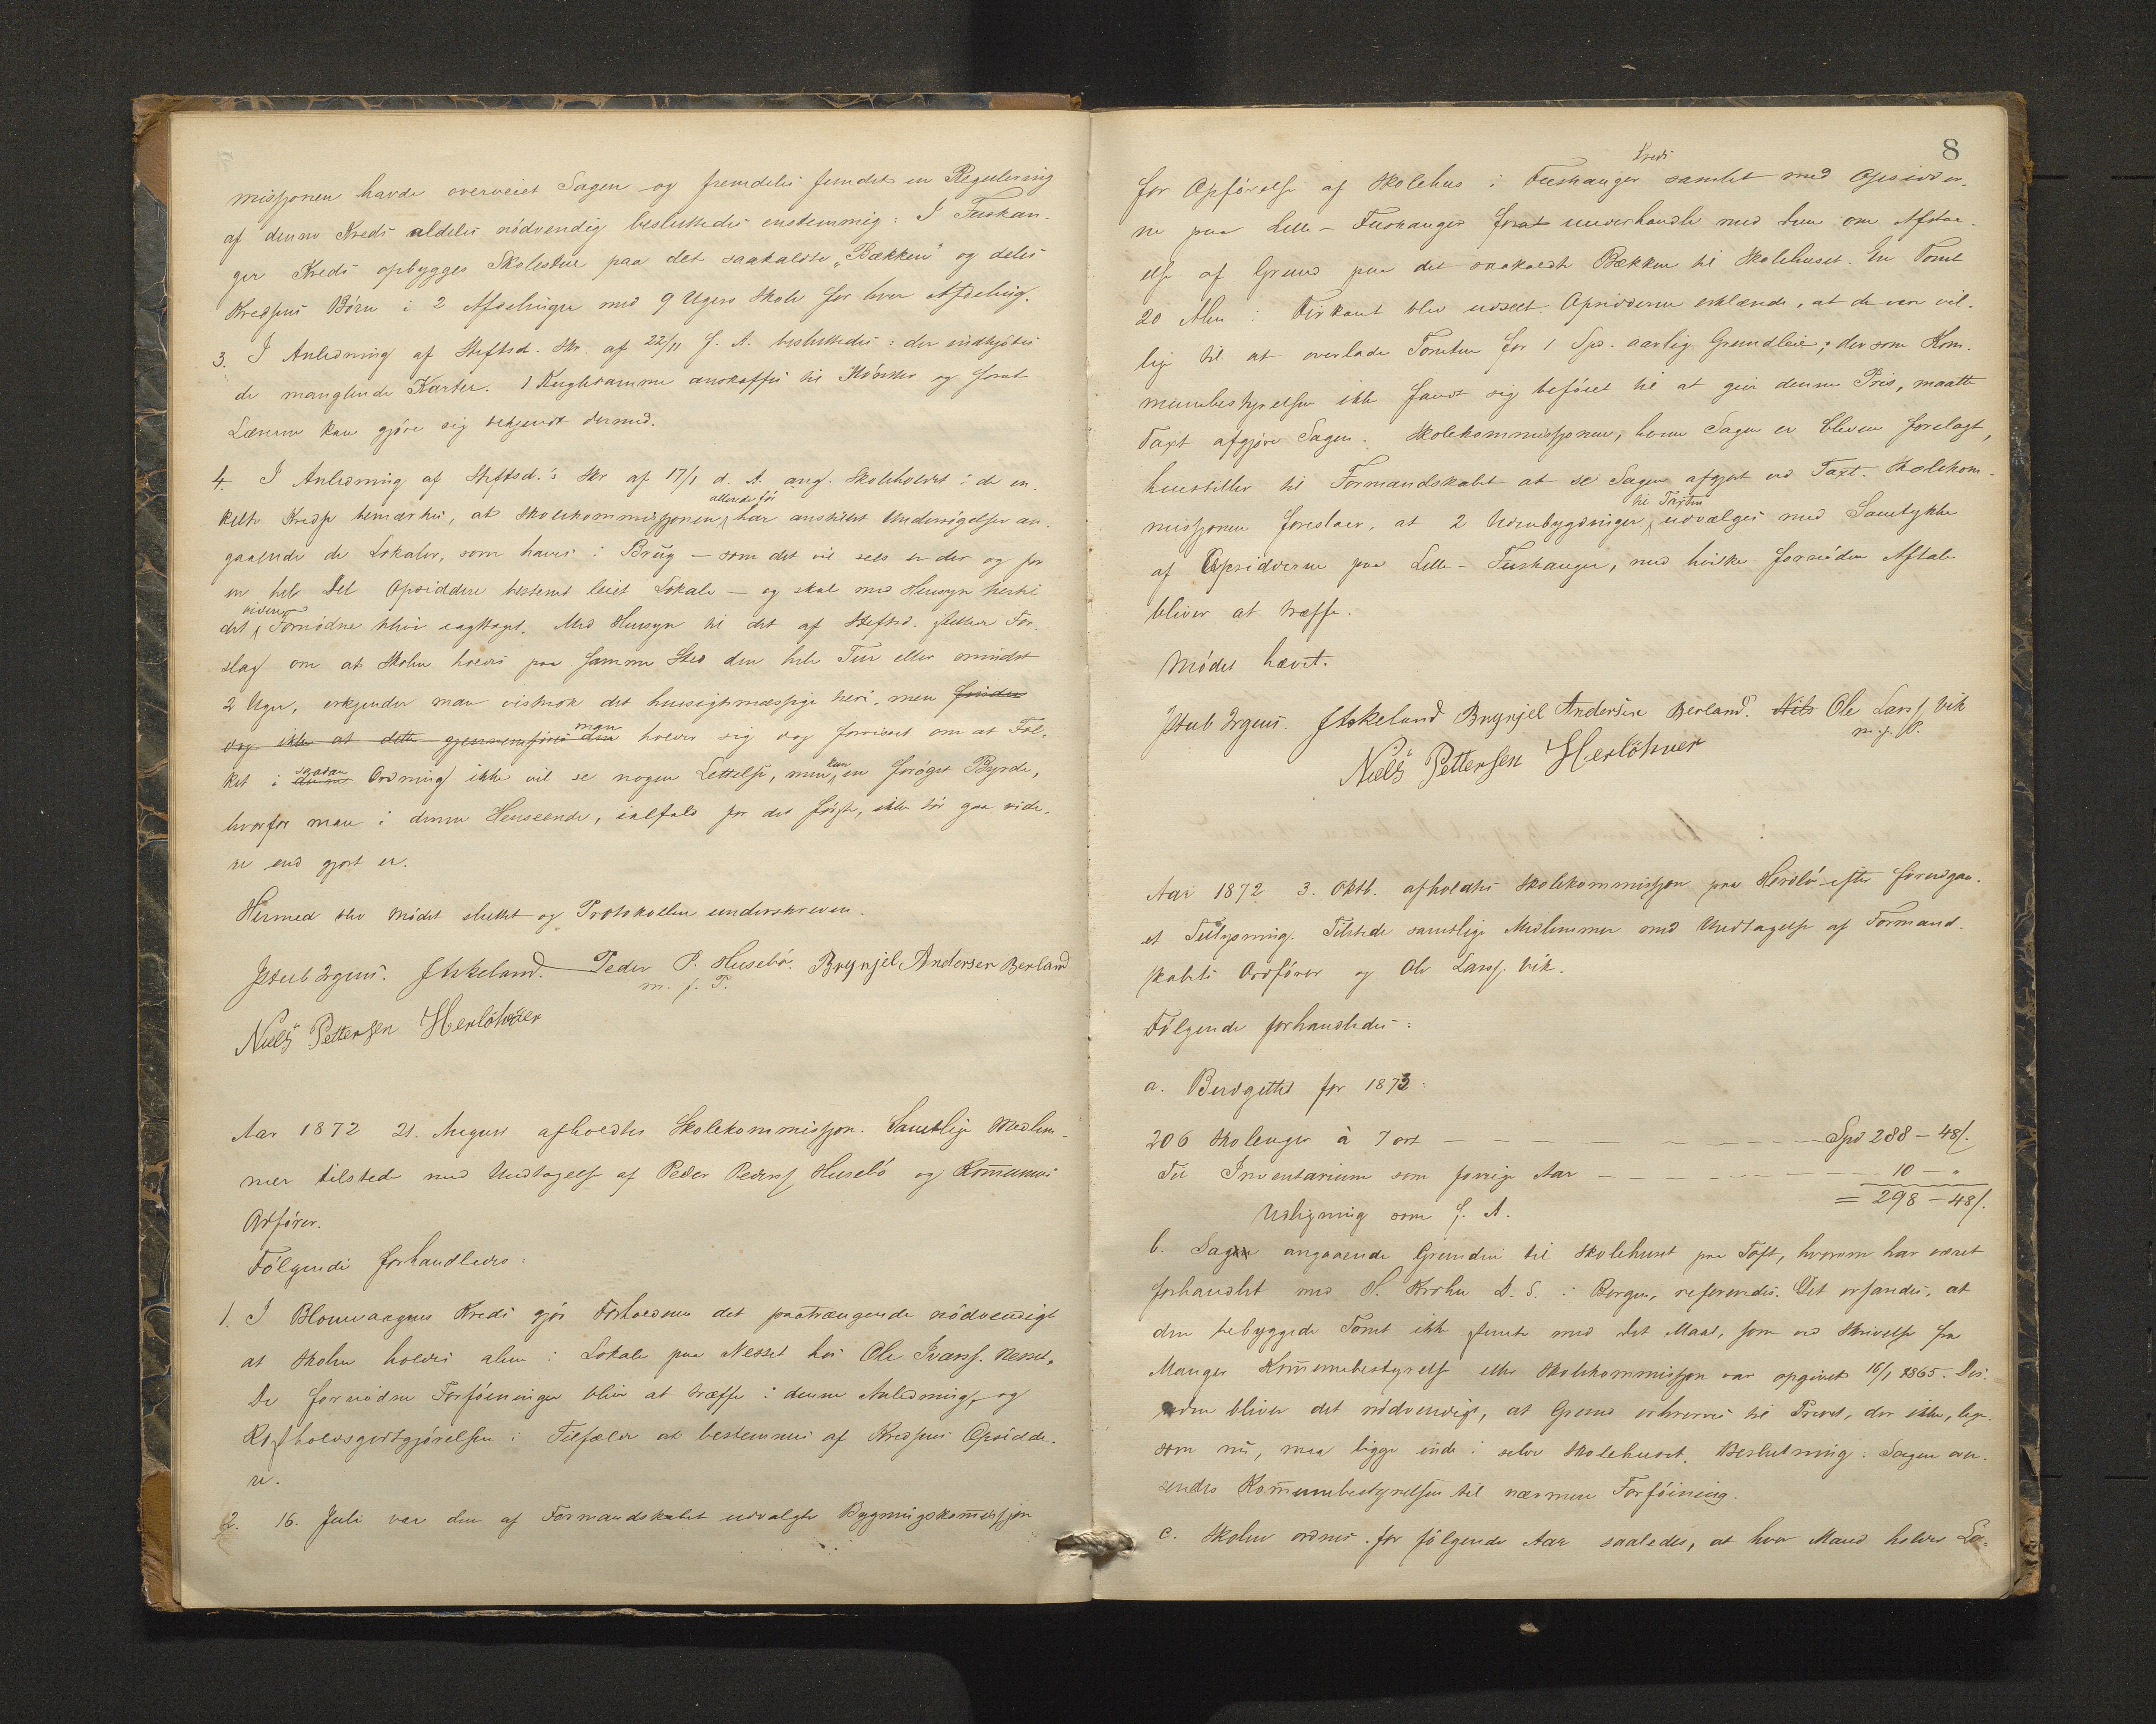 missjonen havde overveiet Sagen og fremdeles fundet en Regulering
af denne Kreds aldeles nödvendig besluttedes enstemmig: I Fuskan-
ger Kreds opbygges Skolestue paa det saakaldte „Bækken” og deles
Kredsens Börn i 2 Afdelinger med 9 Ugers Skole for hver Afdeling.
3. I Anledning af Stiftsd. Skr. af 22/11 f. A. besluttedes: der indkjöbes
de manglende Karter. 1 Kugleramme anskaffes til og forat
Lærerne kan gjöre sig bekjendt dermed.
4. I Anledning af Stiftsd.'s Skr af 17/1 d. A. ang. Skoleholdet i de en-
kelte Kredse bemærkes, at Skolekommissjonen allerede för har anstillet Undersögelser an-
gaaende de Lokaler, som haves i Brug – som det vil sees er der og for
en hel Del Opsiddere bestemt leiet Lokale – og skal med Hensyn hertil
det videre Fornödne blive iagttaget. Med Hensyn til det af Stiftsd. stillede For-
slag om at Skolen holdes paa samme Sted den hele Tur eller mindst
2 Uger, erkjender man vistnok det hensigtsmæssige heri, men finder
dog ikke at dette gjennemföres den man holder sig dog forvisset om at Fol-
ket i denne saadan Ordning ikke vil se nogen Lettelse, men kun en foröget Byrde,
hvorfor man i denne Henseende, ialfald for det förste, ikke bör gaa vide-
re end gjort er.
Hermed blev Mödet sluttet og Protokollen underskreven.
Jakob Irgens. J Askeland. Peder P. Husebö. Brynjel Andersen Berland
m. f. P.
Niels Pettersen Herlöhver
Aar 1872 21. August afholdtes Skolekommissjon. Samtlige Medlem-
mer tilstede med Undtagelse af Peder Peders. Husebö og Kommunes
Ordförer.
Fölgende forhandledes:
1. I Blomvaagnes Kreds gjör Forholdene det paatrængende nödvendigt
at Skolen holdes alene i Lokale paa Nesset hos Ole Ivers. Nesset.
De fornödne Forföininger bliver at træffe i denne Anledning, og
Kostholdsgodtgjörelsen i Tilfælde at bestemmes af Kredsens Opsidde-
re.
2. 16. Juli var den af Formandskabet udvalgte Bygningskommissjon
8
for Opförelse af Skolehus i Fuskanger Kreds samlet med Opsidder-
ne paa Lille-Fuskanger forat underhandle med dem om Afstaa-
else af Grund paa det saakaldte Bækken til Skolehuset. En Tomt
20 Alen i Firkant blev udseet. Opsidderne erklærede, at de vare vil-
lige til at overlade Tomten for 1 Spd. aarlig Grundleie; dersom Kom-
munebestyrelsen ikke fandt sig beföiet til at give denne Pris, maatte
Taxt afgjöre Sagen. Skolekommissjonen, hvem Sagen er bleven forelagt,
henstiller til Formandskabet at se Sagen afgjort ved Taxt. Skolekom-
missjonen foreslaar, at 2 Udenbygdninger til Taxten udvælges med Samtykke
af Opsidderne paa Lille-Fuskanger, med hvilke fornöden Aftale
bliver at træffe.
Mödet hævet.
Jakob Irgens. J Askeland Brynjel Andersen Berland. Nils Ole Larss. Vik
m. f. P.
Niels Pettersen Herlöhver
Aar 1872 3. Oktb. afholdtes Skolekommissjon paa Herdlö efter foregaa-
et Tillysning. Tilstede samtlige Medlemmer med Undtagelse af Formand-
skabets Ordförer og Ole Larss. Vik.
Fölgende forhandledes:
a. Budgettet for 1873:
206 Skoleuger à 7 ort – – – – – – – – Spd 288 – 48 s.
Til Inventarium som forrige Aar – – – – – – 10 – "
= 298 – 48 s.
Udligning som f. A.
b. Sagen angaaende Grunden til Skolehuset paa Toft, hvorom har været
forhandlet med H. Krohn D. S. i Bergen, refereredes. Det erfaredes, at
den bebyggede Tomt ikke stemte med det Maal, som ved Skrivelse fra
Manger Kommunebestyrelse eller Skolekommissjon var opgivet 16/1 1865. Des-
uden bliver det nödvendigt, at Grund erhverves til Privet, der ikke, lige-
som nu, maa ligge inde i selve Skolehuset. Beslutning: Sagen over-
sendes Kommunebestyrelsen til nærmere Forföining.
c. Skolen ordnes for fölgende Aar saaledes, at hver Mand holder Læ-